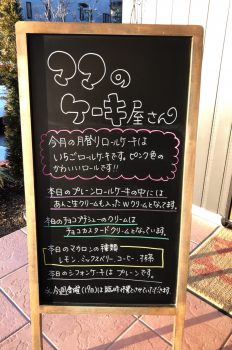 ママの
ケーキ屋さん
今月の月替りロールケーキは
いちごロールケーキです。ピンク色の
かわいいロールです!!
本日のプレーンロールケーキの中には
あんこ生クリームも入ったWクリームとなってます。
本日のチョコプチシューのクリームは
チョコカスタードクリームとなっています。
本日のマカロンの種類
レモン、ミックスベリー、コーヒー、抹茶
本日のシフォンケーキは プレーンです。
今週金曜(19日)は臨時休業とさせていただきます